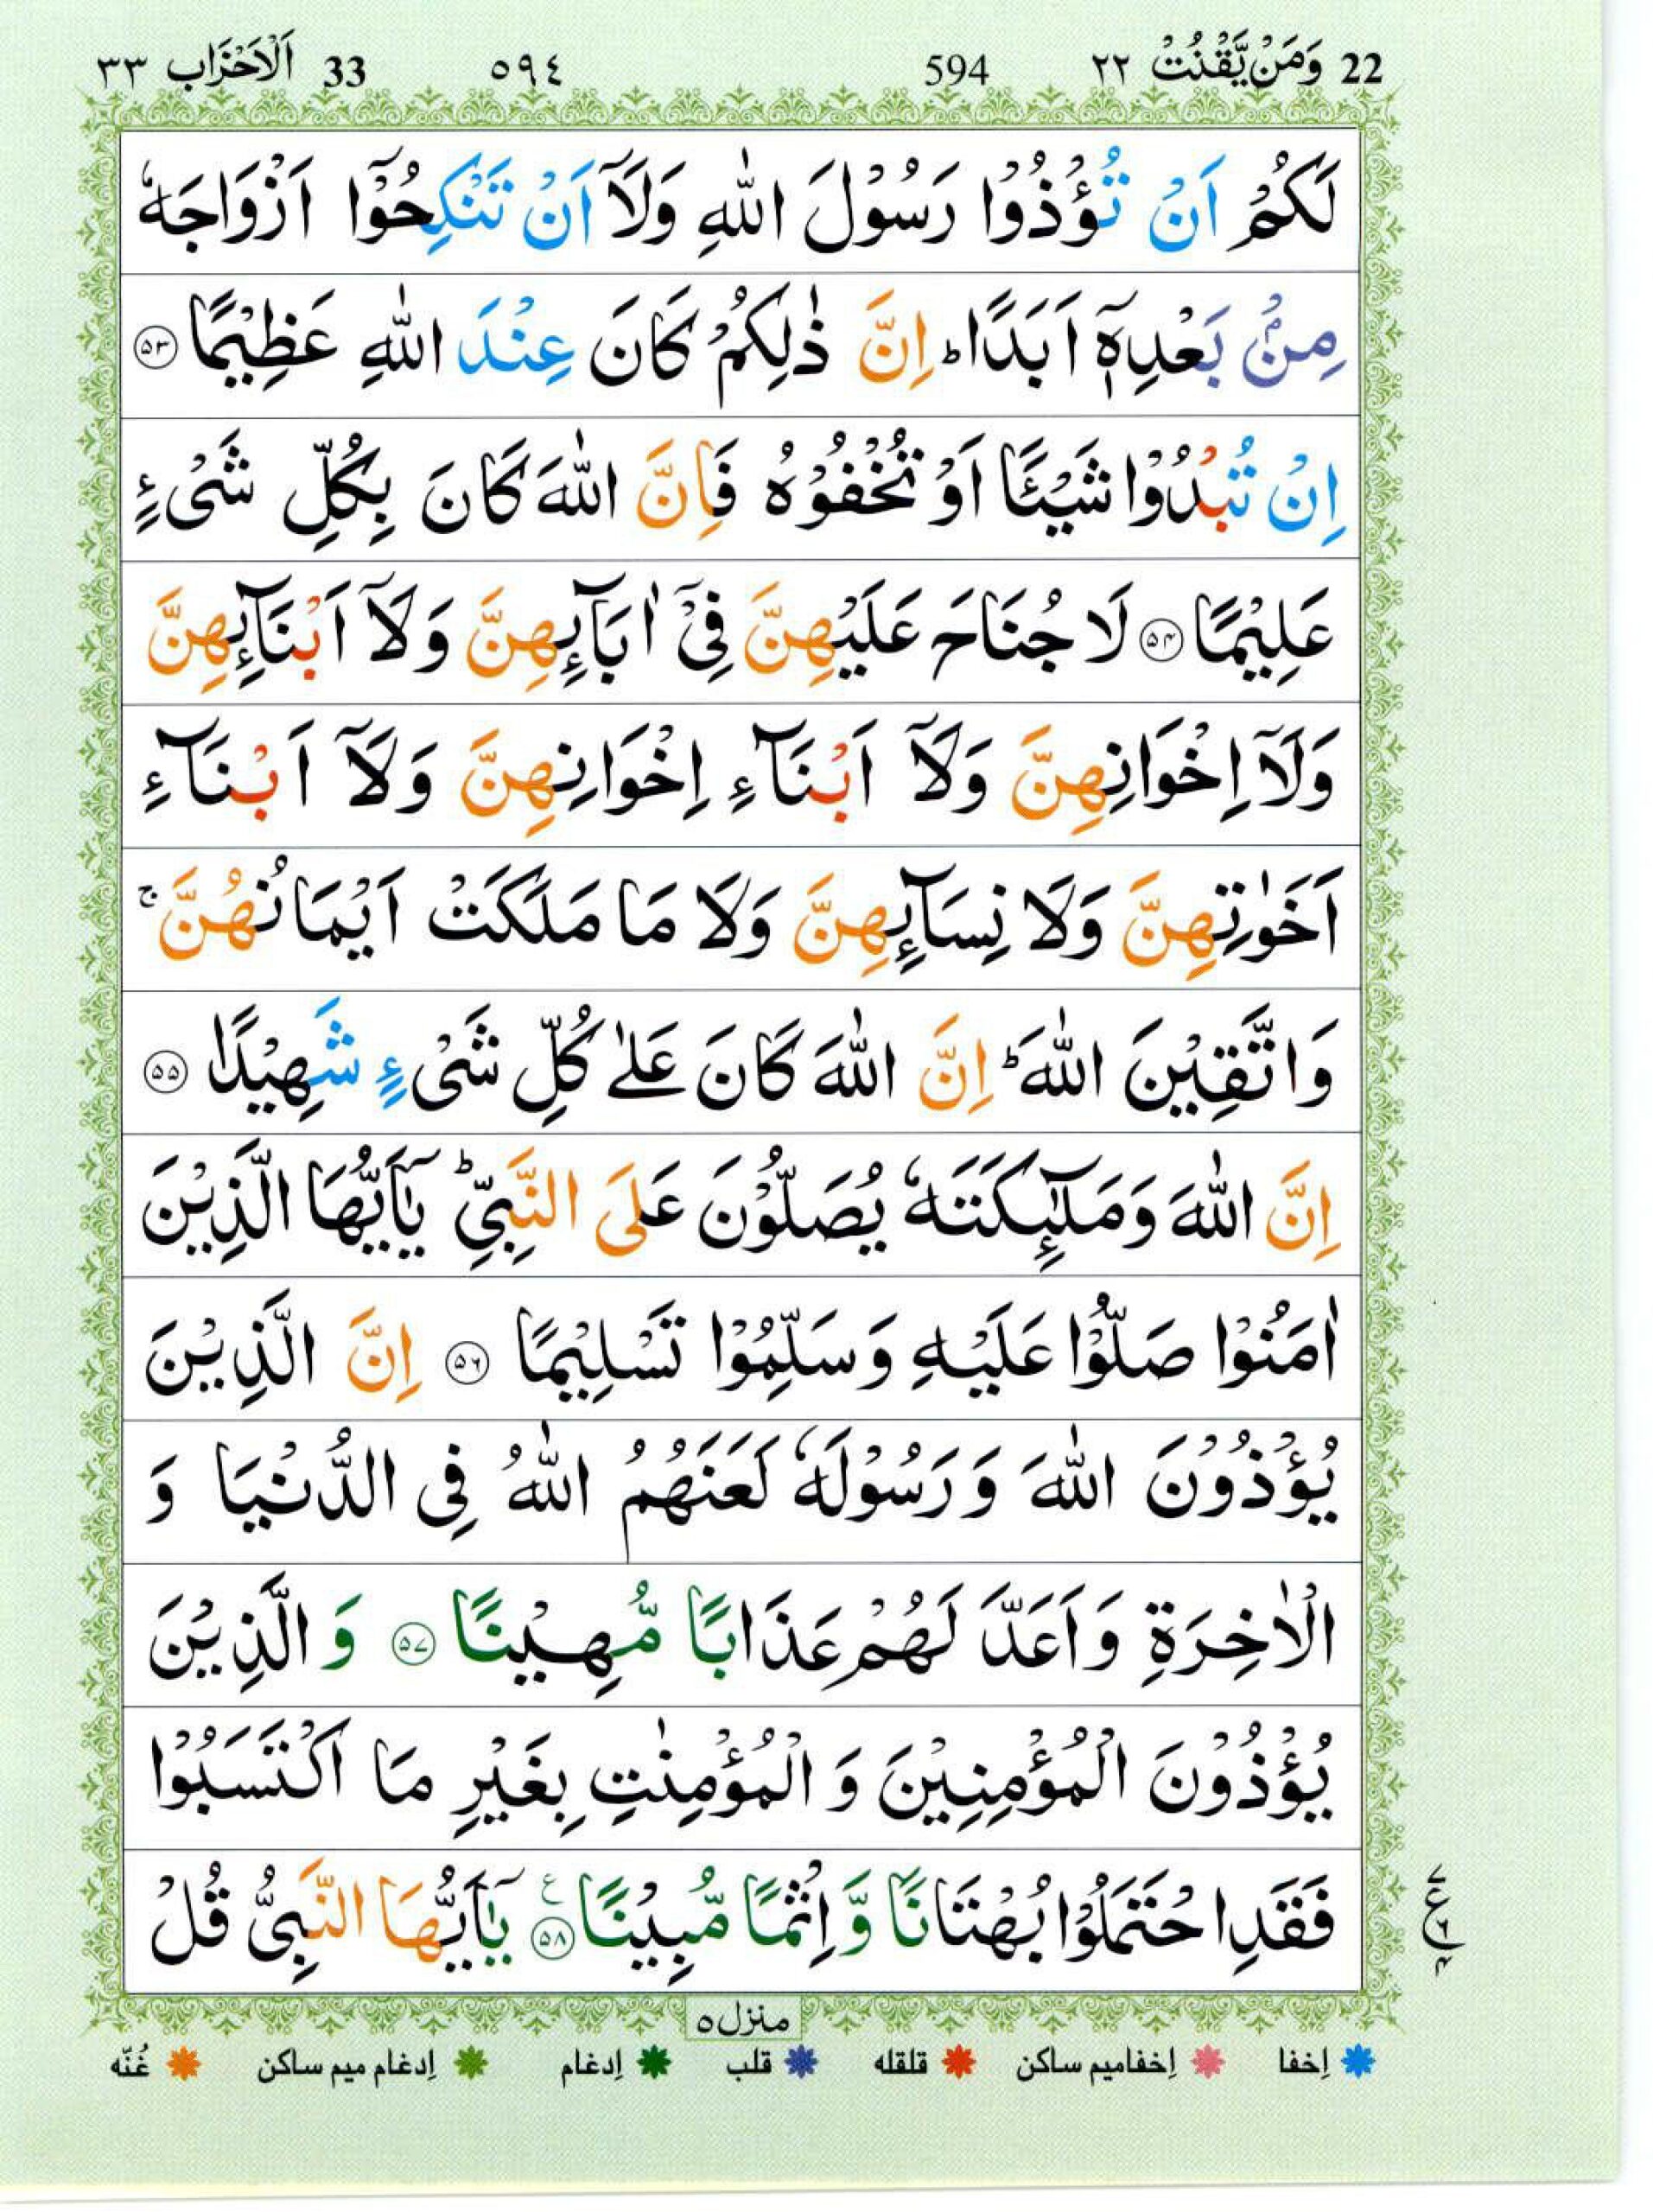 22 وَمَنْ يَّقْنُتْ ٢٢ 594 ٥٩٤ 33 اَلْاَحْزَاب ٣٣
لَكُمْ اَنْ تُؤْذُوْا رَسُوْلَ اللّٰهِ وَلَاۤ اَنْ تَنْكِحُوْۤا اَزْوَاجَهٗ
مِنْۢ بَعْدِهٖۤ اَبَدًا ؕ اِنَّ ذٰلِكُمْ كَانَ عِنْدَ اللّٰهِ عَظِيْمًا ﴿۵۳﴾
اِنْ تُبْدُوْا شَيْـًٔا اَوْ تُخْفُوْهُ فَاِنَّ اللّٰهَ كَانَ بِكُلِّ شَیْءٍ
عَلِيْمًا ﴿۵۴﴾ لَا جُنَاحَ عَلَيْهِنَّ فِیْۤ اٰبَآئِهِنَّ وَلَاۤ اَبْنَآئِهِنَّ
وَلَاۤ اِخْوَانِهِنَّ وَلَاۤ اَبْنَآءِ اِخْوَانِهِنَّ وَلَاۤ اَبْنَآءِ
اَخَوٰتِهِنَّ وَلَا نِسَآئِهِنَّ وَلَا مَا مَلَكَتْ اَيْمَانُهُنَّ ۚ
وَاتَّقِيْنَ اللّٰهَ ؕ اِنَّ اللّٰهَ كَانَ عَلٰی كُلِّ شَیْءٍ شَهِيْدًا ﴿۵۵﴾
اِنَّ اللّٰهَ وَمَلٰٓئِكَتَهٗ يُصَلُّوْنَ عَلَی النَّبِیِّ ؕ يٰۤاَيُّهَا الَّذِيْنَ
اٰمَنُوْا صَلُّوْا عَلَيْهِ وَسَلِّمُوْا تَسْلِيْمًا ﴿۵۶﴾ اِنَّ الَّذِيْنَ
يُؤْذُوْنَ اللّٰهَ وَرَسُوْلَهٗ لَعَنَهُمُ اللّٰهُ فِی الدُّنْيَا وَ
الْاٰخِرَةِ وَاَعَدَّ لَهُمْ عَذَابًا مُّهِيْنًا ﴿۵۷﴾ وَالَّذِيْنَ
يُؤْذُوْنَ الْمُؤْمِنِيْنَ وَ الْمُؤْمِنٰتِ بِغَيْرِ مَا اكْتَسَبُوْا
فَقَدِ احْتَمَلُوْا بُهْتَانًا وَّاِثْمًا مُّبِيْنًا ﴿۵۸﴾ ع يٰۤاَيُّهَا النَّبِیُّ قُلْ
منزل ۵
إخفا إخفا ميم ساكن قلقله قلب إدغام إدغام ميم ساكن غُنّه